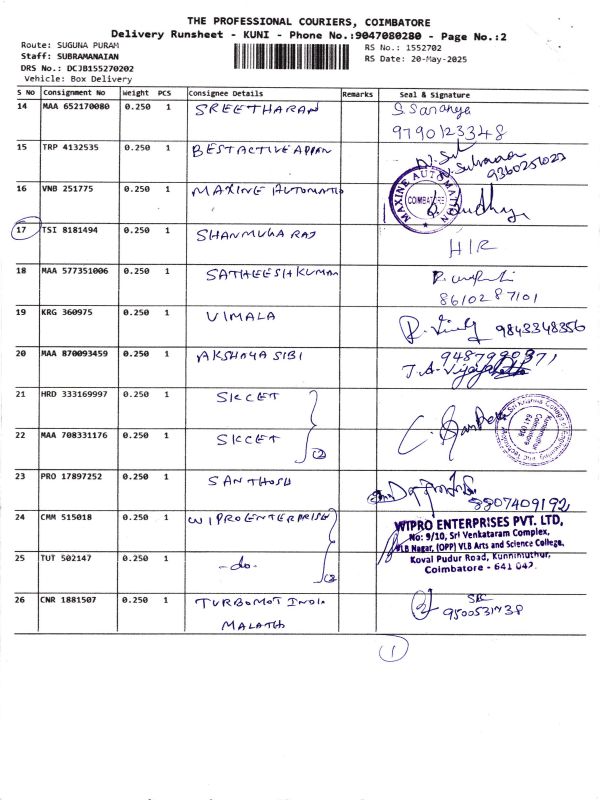 THE PROFESSIONAL COURIERS, COIMBATORE
Delivery Runsheet - KUNI - Phone No.:9047080280 - Page No.:2
Route: SUGUNA PURAM
Staff: SUBRAMANAIAN
DRS No.: DCJB155270202
Vehicle: Box Delivery
RS No.: 1552702
RS Date: 20-May-2025
S No Consignment No Weight PCS Consignee Details Remarks Seal & Signature
14 MAA 652170080 0.250 1 SREETHARAN S. Saranya
9790123348
15 TRP 4132535 0.250 1 BESTACTIVE APPAN
9360251023
16 VNB 251775 0.250 1 MAXINE AUTOMATIO
MAXINE AUTOMATION
COIMBATORE
17 TSI 8181494 0.250 1 SHANMUGA RAJ H/R
18 MAA 577351006 0.250 1 SATHEESHKUMAR
8610287101
19 KRG 360975 0.250 1 VIMALA 9843348356
20 MAA 870093459 0.250 1 AKSHAYA SIBI
21 HRD 333169997 0.250 1 SKCET
22 MAA 708331176 0.250 1 SKCET
(2)
23 PRO 17897252 0.250 1 SANTHOSH
8807409192
24 CMM 515018 0.250 1 WIPRO ENTERPRISE
25 TUT 502147 0.250 1 -do-
(2)
WIPRO ENTERPRISES PVT. LTD,
No: 9/10, Sri Venkataram Complex,
VLB Nagar, (OPP) VLB Arts and Science College,
Kovai Pudur Road, Kunnimuthur,
Coimbatore - 641 042.
26 CNR 1881507 0.250 1 TURBOMOT INDIA
MALATHI
1